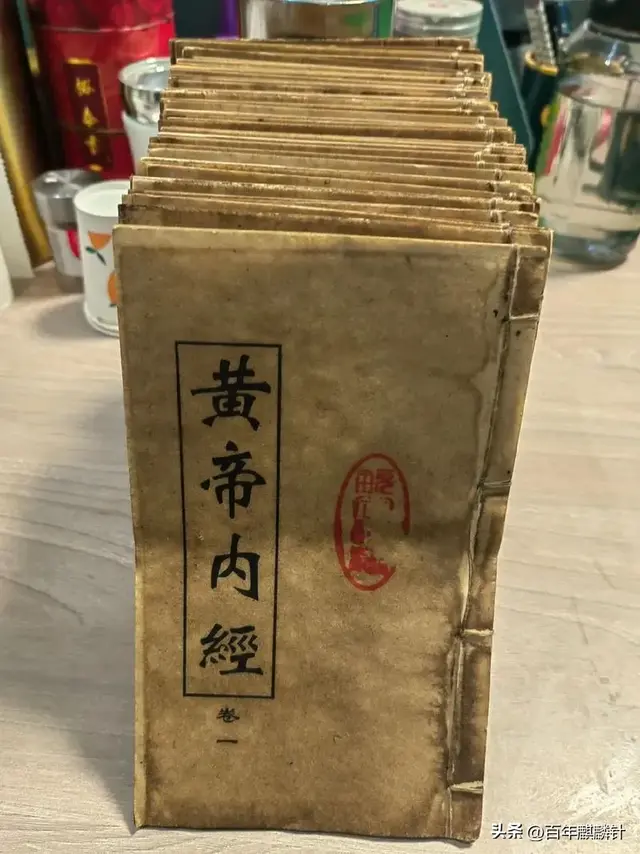 黄帝内經
卷一
头条 @百年麒麟针